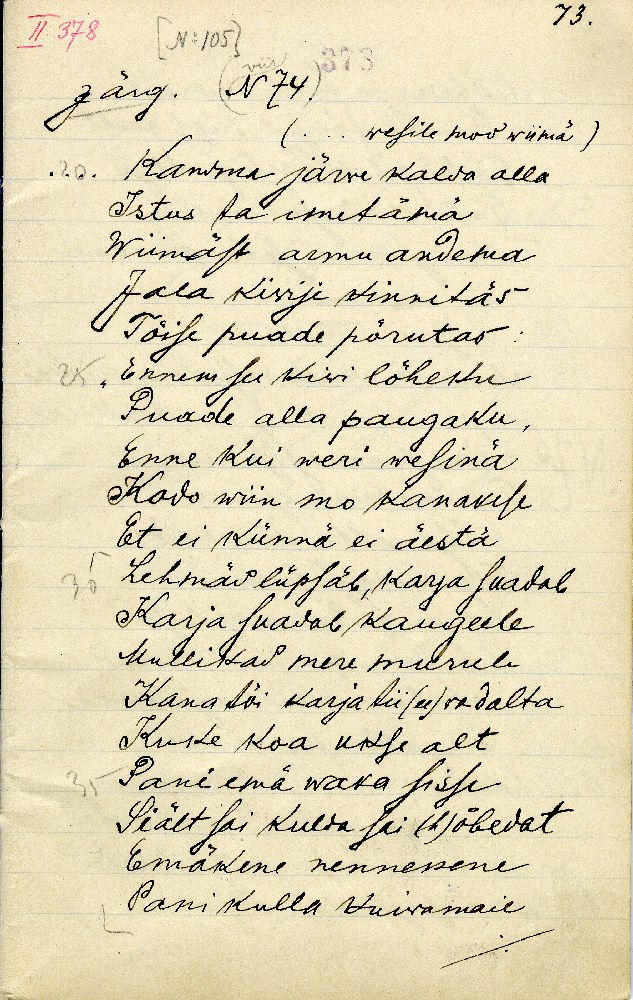 73.
II 378
[N: 105]
(viis)
373
Järg. N 74
( . . . wesile moo wiimä )
.20. Kandma järwe kalda alla
Istus ta imetämä
Wiimäst armu andema
Jala kiwije kinnitäs
Töise puade põrutas :
25 „Ennem see kiwi lõhesku
Puade alla paugaku,
Enne kui weri wesinä
Kodo wiin mo kanakese
Et ei künnä ei äestä
30 Lehmäd lüpsäb, karja suadab
Karja suadab kaugeele
Mullikad mere murule
Kana tõi karja tii(ee) radalta
Kuke koa ukse alt
35 Pani emä waka sisse
Säält sai kulda sai (h)õbedat
Emäkene nennekene
Pani kulla kuiwamaie